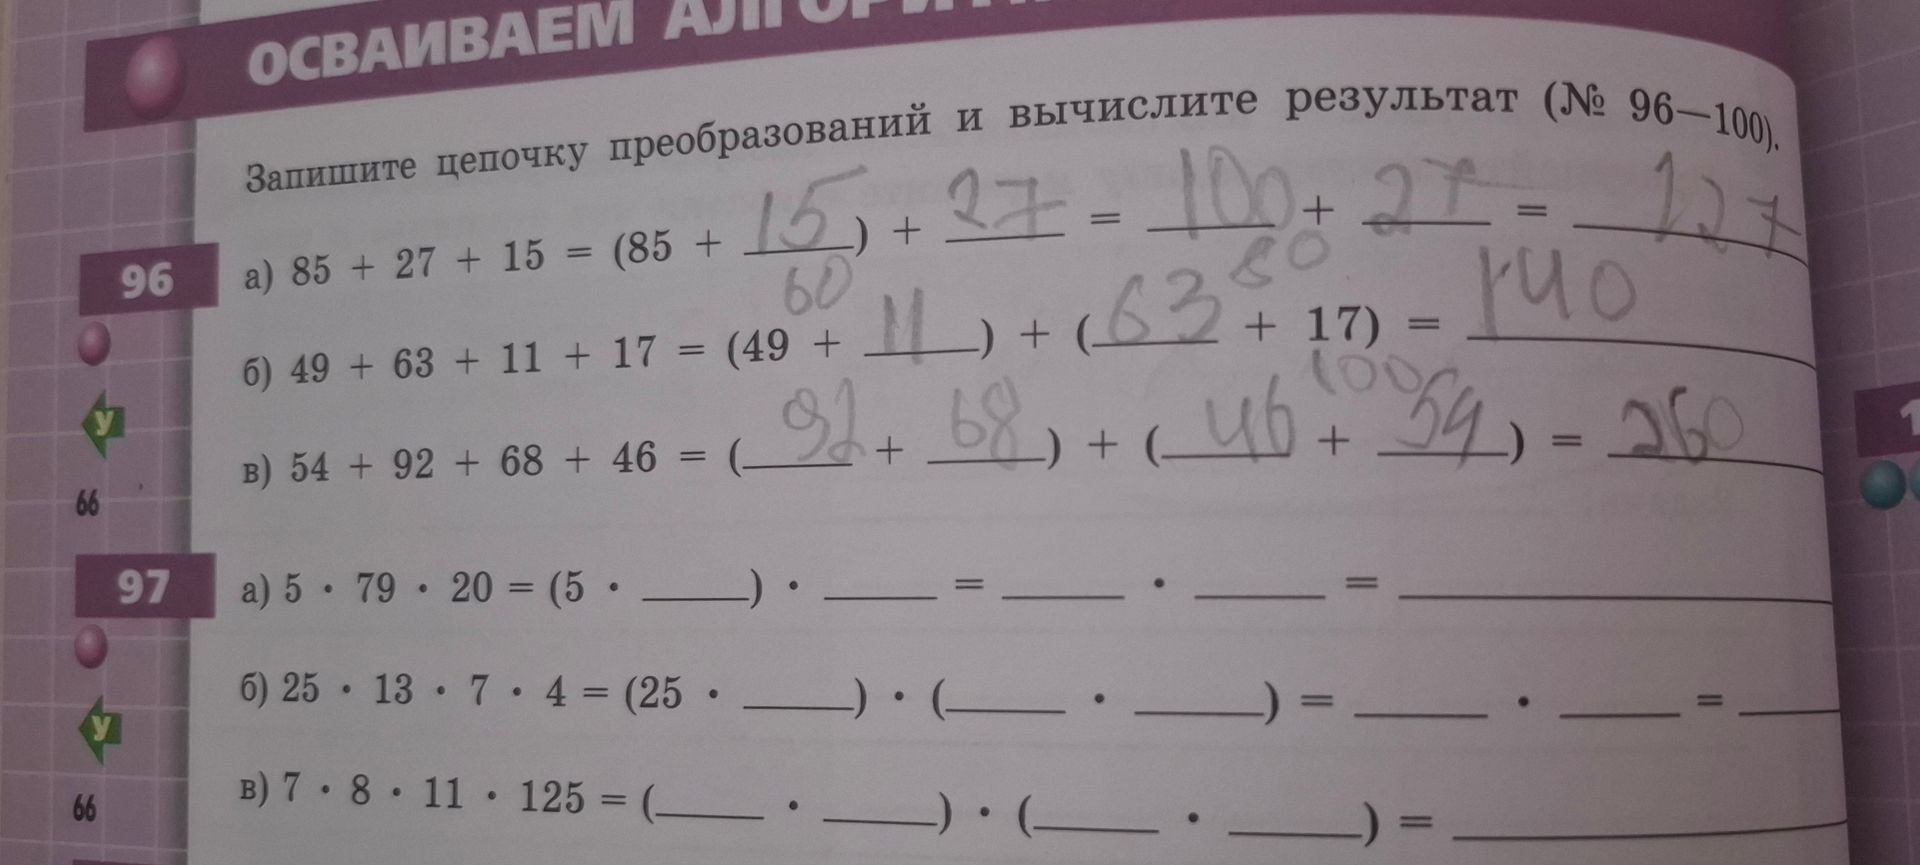 ОСВАИВАЕМ
Запишите цепочку преобразований и вычислите результат (№ 96—100).
96
а) 85 + 27 + 15 = (85 + 15) + 27 = 100 + 27 = 127
60 80
б) 49 + 63 + 11 + 17 = (49 + 11) + (63 + 17) = 140
100
У
в) 54 + 92 + 68 + 46 = (92 + 68) + (46 + 54) = 260
66
97
а) 5 · 79 · 20 = (5 · ____) · ____ = ____ · ____ = ____
б) 25 · 13 · 7 · 4 = (25 · ____) · (____ · ____) = ____ · ____ = ____
У
в) 7 · 8 · 11 · 125 = (____ · ____) · (____ · ____) = ____
66